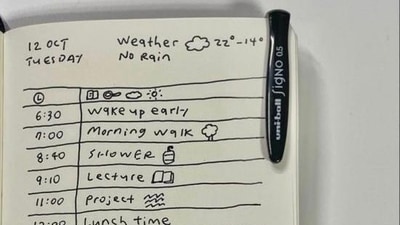 12 OCT
TUESDAY
Weather 22°-14°
No RAIN
6:30 Wake up early
7:00 Morning Walk
8:40 SHOWER
9:10 Lecture
11:00 Project
12:00 Lunch time
uni-ball SIGNO 0.5